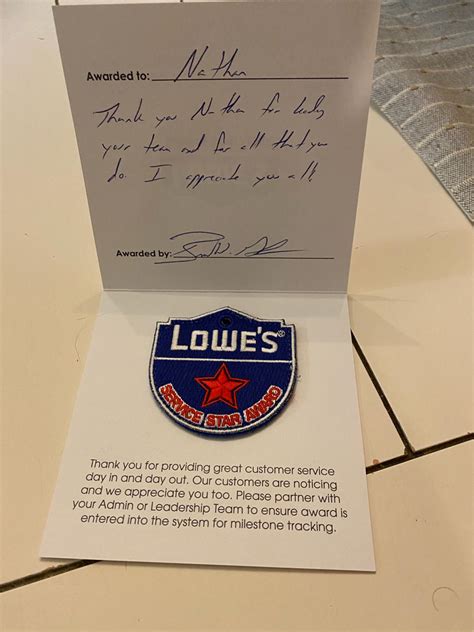 Awarded to: Nathan
Thank you Nathan for leading
your team and for all that you
do. I appreciate you all!
Awarded by:
LOWE'S®
SERVICE STAR AWARD
Thank you for providing great customer service
day in and day out. Our customers are noticing
and we appreciate you too. Please partner with
your Admin or Leadership Team to ensure award is
entered into the system for milestone tracking.